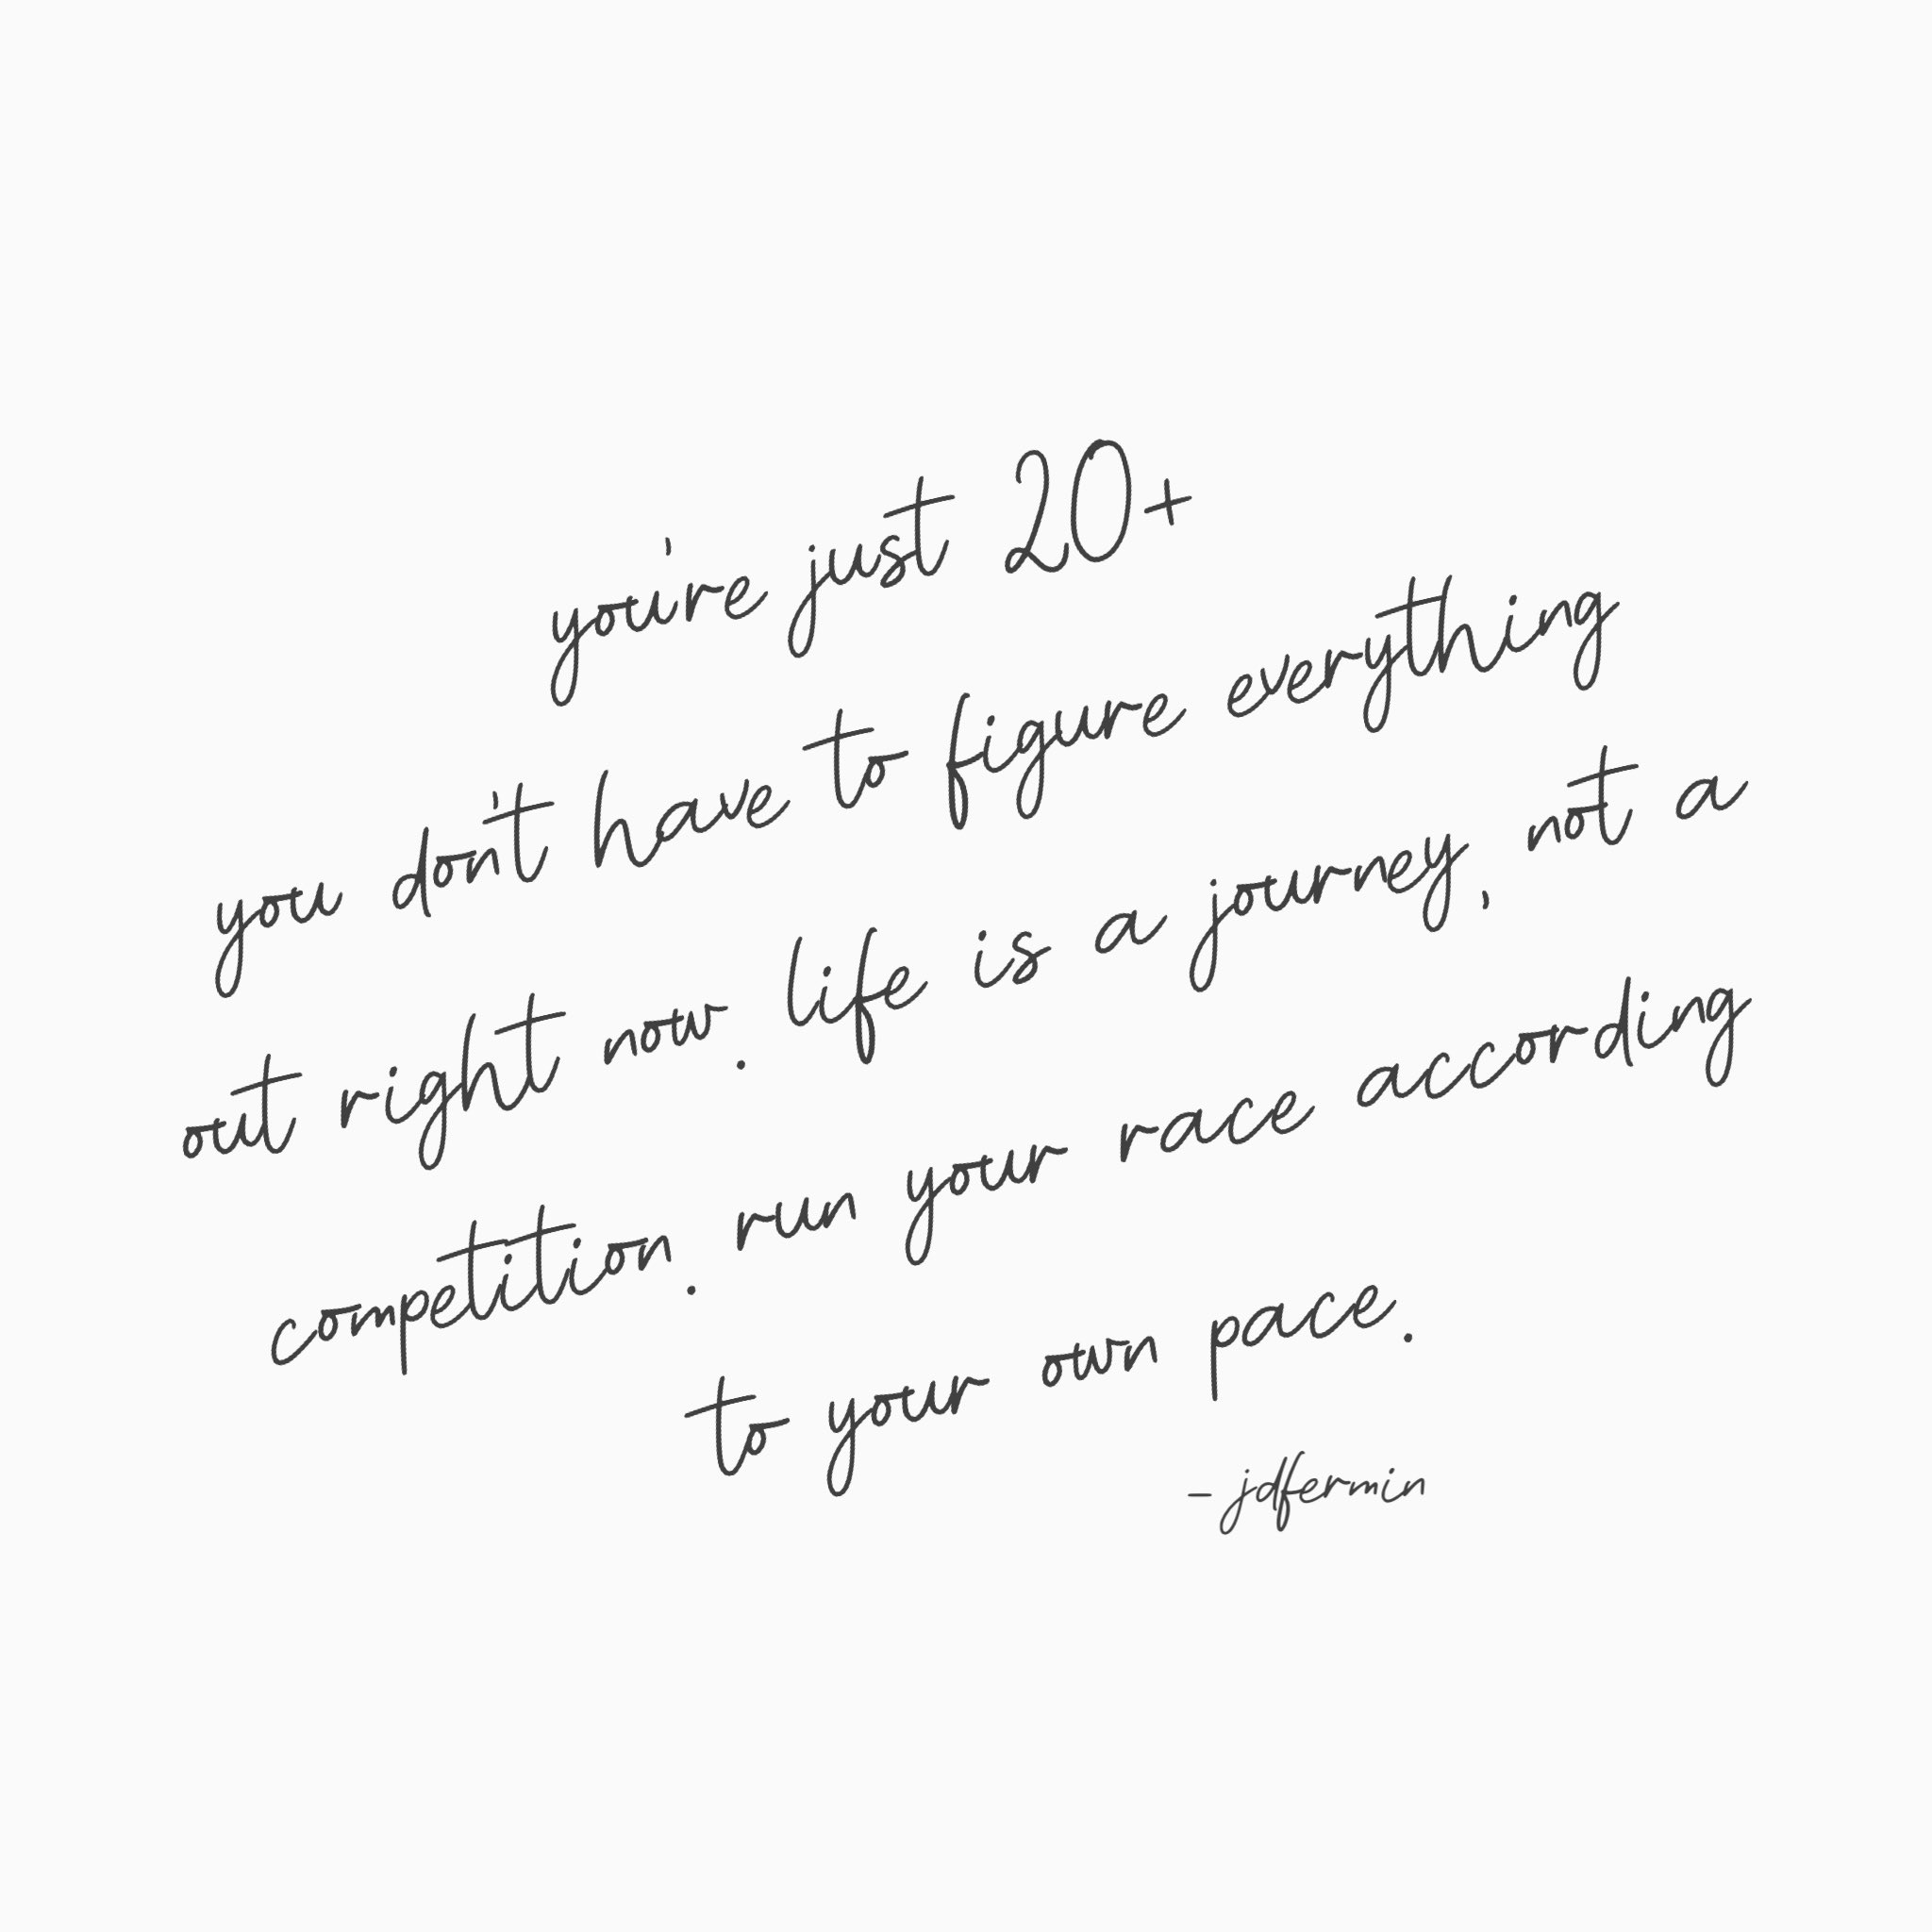 you're just 20+
you don't have to figure everything
out right now. life is a journey, not a
competition. run your race according
to your own pace.
- jdfermin